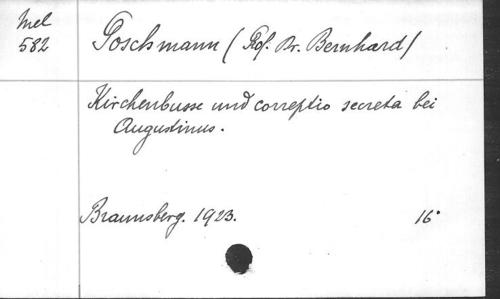 Mel
582
Poschmann (Prof. Dr. Bernhard)
Kirchenbusse und correptio secreta bei
Augustinus.
Braunsberg. 1923. 16°